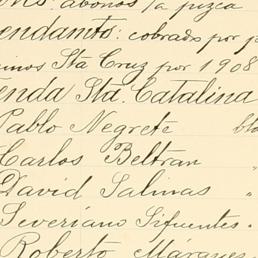 abonos la pizca
endamto: cobrado por p
inos Sta Cruz por 1908
enda Sta. Catalina
Pablo Negrete
Carlos Beltran "
David Salinas "
Severiano Sifuentes "
Roberto Márques "